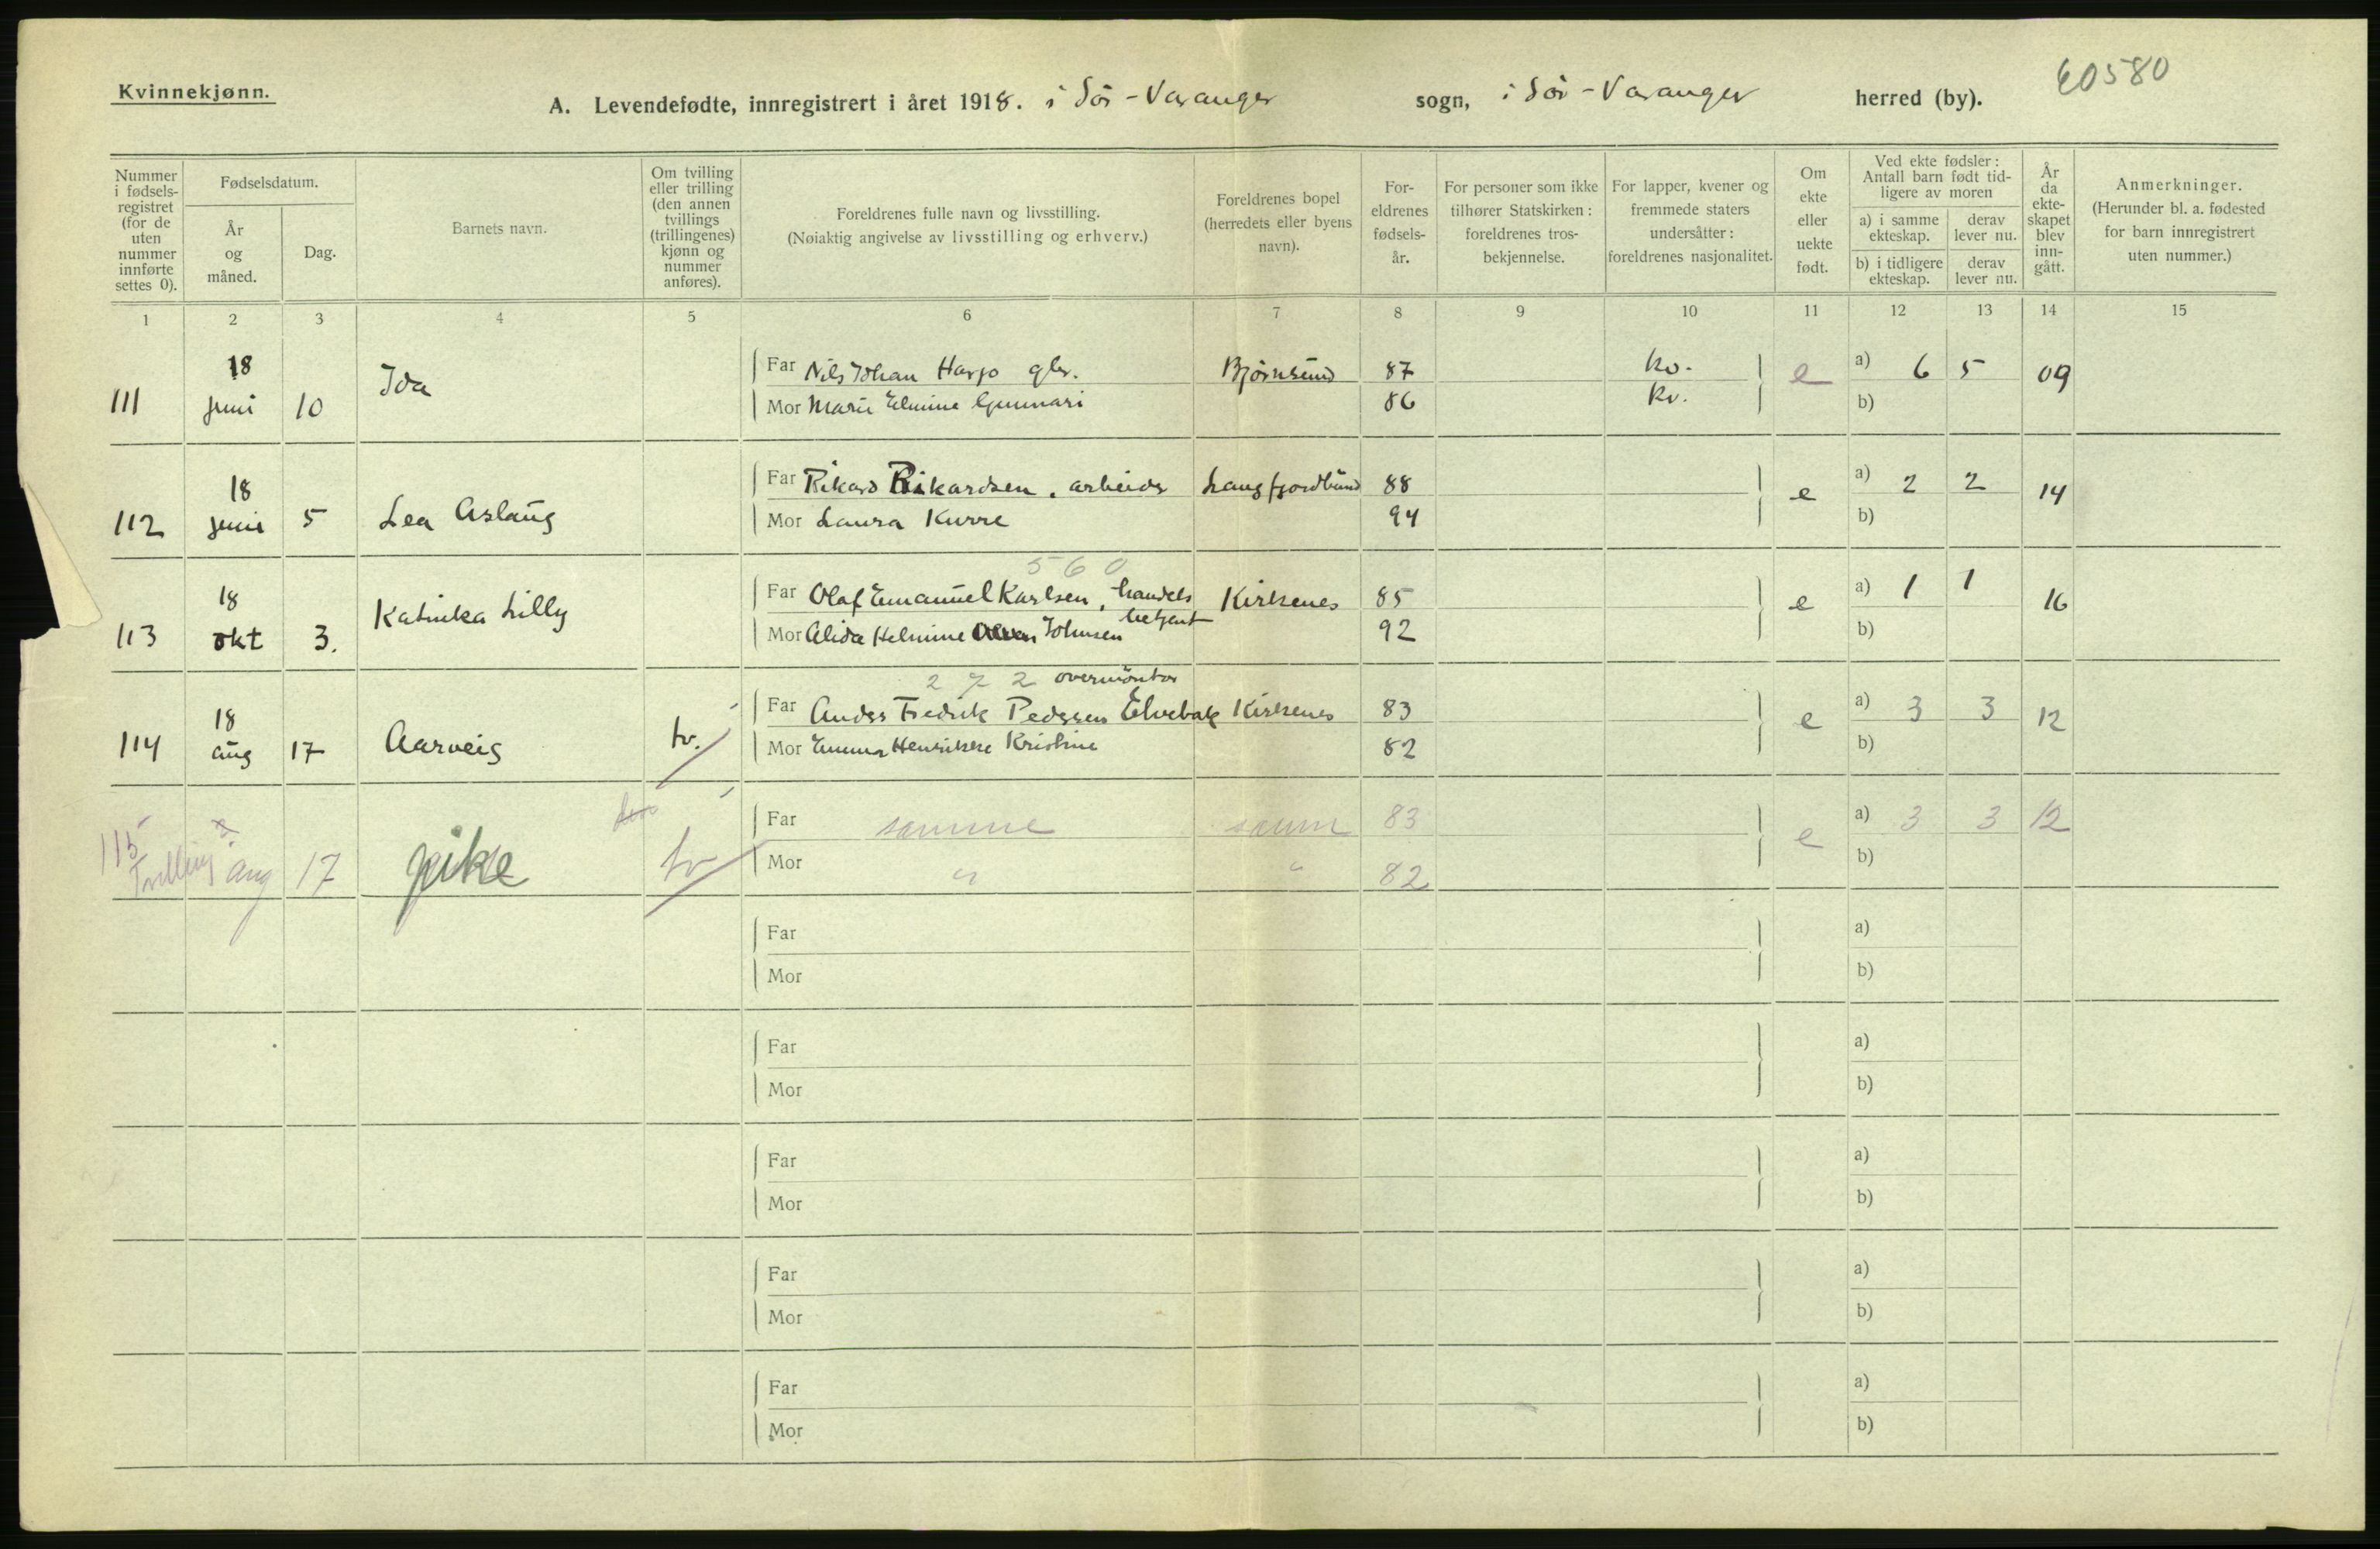 Kvinnekjønn.
A. Levendefødte, innregistrert i året 1918. i Sör-Varanger sogn, i Sör-Varanger herred (by).
60580
Nummer i fødselsregistret (for de uten nummer innførte settes 0).
Fødselsdatum.
År og måned.
Dag.
Barnets navn.
Om tvilling eller trilling (den annen tvillings (trillingenes) kjønn og nummer anføres).
Foreldrenes fulle navn og livsstilling.
(Nøiaktig angivelse av livsstilling og erhverv.)
Foreldrenes bopel (herredets eller byens navn).
For-eldrenes fødsels-år.
For personer som ikke tilhører Statskirken: foreldrenes tros-bekjennelse.
For lapper, kvener og fremmede staters undersåtter: foreldrenes nasjonalitet.
Om ekte eller uekte født.
Ved ekte fødsler: Antall barn født tid-ligere av moren
a) i samme ekteskap.
derav lever nu.
b) i tidligere ekteskap.
derav lever nu.
År da ekte-skapet blev inn-gått.
Anmerkninger.
(Herunder bl. a. fødested for barn innregistrert uten nummer.)
1 2 3 4 5 6 7 8 9 10 11 12 13 14 15
111 18 juni 10 Ida
Far Nils Johan Harjo gbr. Bjørnsund 87 kv. e a) 6 5 09
Mor Marie Elmine 86 kv. b)
112 18 juni 5 Lea Aslaug
Far Rikard Rikardsen, arbeider Langfjordbund 88 e a) 2 2 14
Mor Laura Kurre 94 b)
560
113 18 okt 3. Katinka Lilly
Far Olaf Emanuel Karlsen, handels betjent Kirkenes 85 e a) 1 1 16
Mor Alida Helmine Johnsen 92 b)
272 overmontør
114 18 aug 17 Aarveig tv.
Far Anders Fredrik Pedersen Elvebak Kirkenes 83 e a) 3 3 12
Mor Emma Henrikke Kristine 82 b)
115 Tvilling aug 17 pike tv
Far samme samm 83 e a) 3 3 12
Mor " " 82 b)
Far a)
Mor b)
Far a)
Mor b)
Far a)
Mor b)
Far a)
Mor b)
Far a)
Mor b)